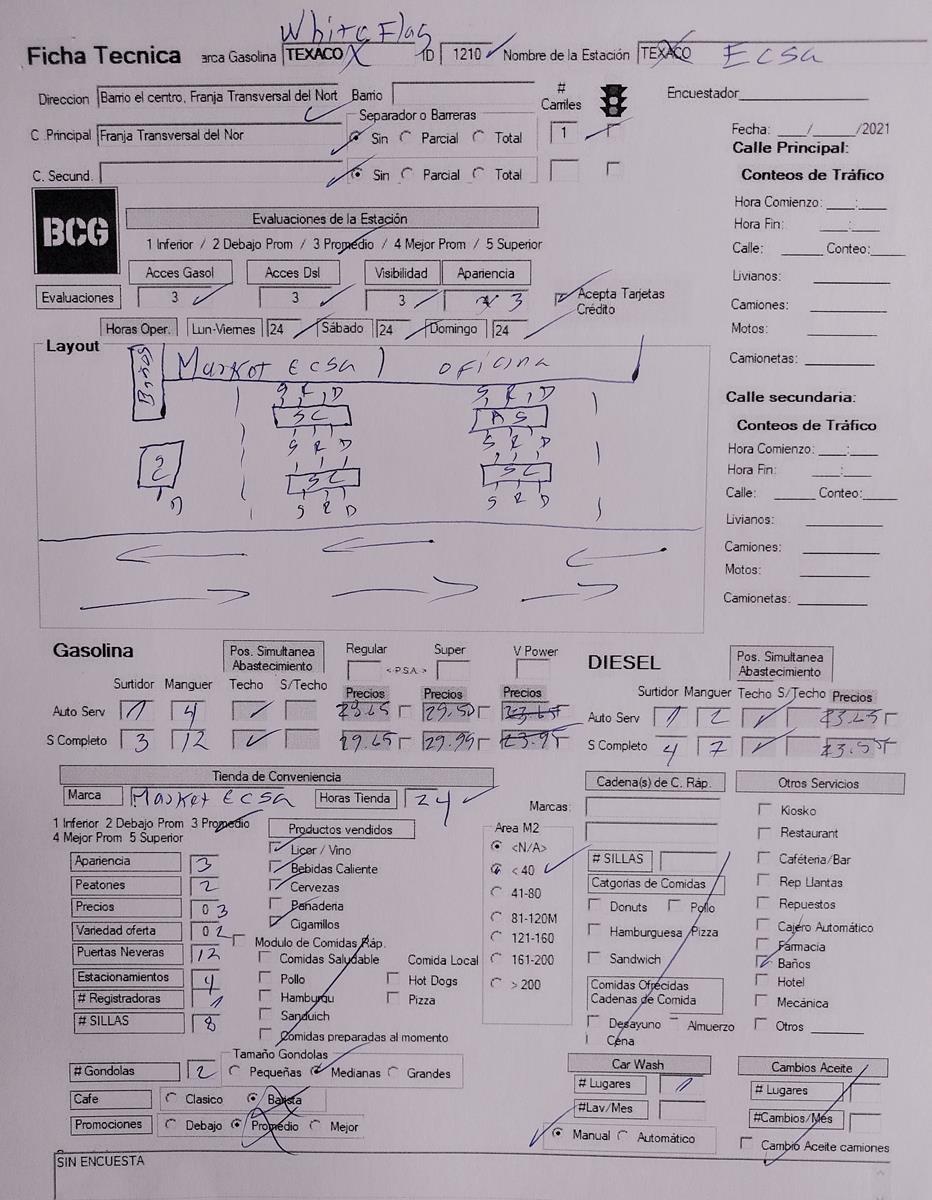 White Flag
Ficha Tecnica arca Gasolina TEXACO X ID 1210 Nombre de la Estación TEXACO Ecsa
Direccion Barrio el centro, Franja Transversal del Nort Barrio # Carriles Encuestador
Separador o Barreras
C .Principal Franja Transversal del Nor Sin Parcial Total 1 Fecha: ___/_____/2021
Calle Principal:
C. Secund. Sin Parcial Total Conteos de Tráfico
BCG
Hora Comienzo: ____:____
Evaluaciones de la Estación Hora Fin: ____:____
1 Inferior / 2 Debajo Prom / 3 Promedio / 4 Mejor Prom / 5 Superior Calle: _____ Conteo:_____
Acces Gasol Acces Dsl Visibilidad Apariencia Livianos:
Evaluaciones 3 3 3 3 Acepta Tarjetas Crédito Camiones:
Horas Oper. Lun-Viernes 24 Sábado 24 Domingo 24 Motos:
Layout Camionetas:
Baños Market Ecsa oficina
S R D S R D
SC AS
S R D S R D
SC SC SC
D S R D S R D
Calle secundaria:
Conteos de Tráfico
Hora Comienzo: ____:____
Hora Fin: ____:____
Calle: ______ Conteo:_____
Livianos:
Camiones:
Motos:
Camionetas:
Gasolina Pos. Simultanea Abastecimiento Regular Super V Power DIESEL Pos. Simultanea Abastecimiento
< P.S.A. >
Surtidor Manguer Techo S/Techo Precios Precios Precios Surtidor Manguer Techo S/Techo Precios
Auto Serv 1 4 29.50 23.65 Auto Serv 1 2 23.65
S Completo 3 12 29.65 29.95 23.95 S Completo 4 7
Tienda de Conveniencia Cadena(s) de C. Ráp. Otros Servicios
Marca Market Ecsa Horas Tienda 24 Marcas:
1 Inferior 2 Debajo Prom 3 Promedio
4 Mejor Prom 5 Superior
Productos vendidos
Licor / Vino
Bebidas Caliente
Cervezas
Panaderia
Cigarrillos
Area M2
<N/A>
< 40
41-80
81-120M
121-160
161-200
> 200
Apariencia 3
Peatones 2
Precios 0 3
Variedad oferta 0 2
Puertas Neveras 12
Estacionamientos 4
# Registradoras 1
# SILLAS 8
Modulo de Comidas Ráp.
Comidas Saludable Comida Local
Pollo Hot Dogs
Hamburgu Pizza
Sanduich
Comidas preparadas al momento
# SILLAS
Catgorias de Comidas
Donuts Pollo
Hamburguesa Pizza
Sandwich
Comidas Ofrecidas
Cadenas de Comida
Desayuno Almuerzo
Cena
Kiosko
Restaurant
Caféteria/Bar
Rep Llantas
Repuestos
Cajero Automático
Farmacia
Baños
Hotel
Mecánica
Otros
Tamaño Gondolas
# Gondolas 2 Pequeñas Medianas Grandes
Cafe Clasico Barista
Promociones Debajo Promedio Mejor
Car Wash
# Lugares 1
#Lav/Mes
Manual Automático
Cambios Aceite
# Lugares
#Cambios/Més
Cambio Aceite camiones
SIN ENCUESTA